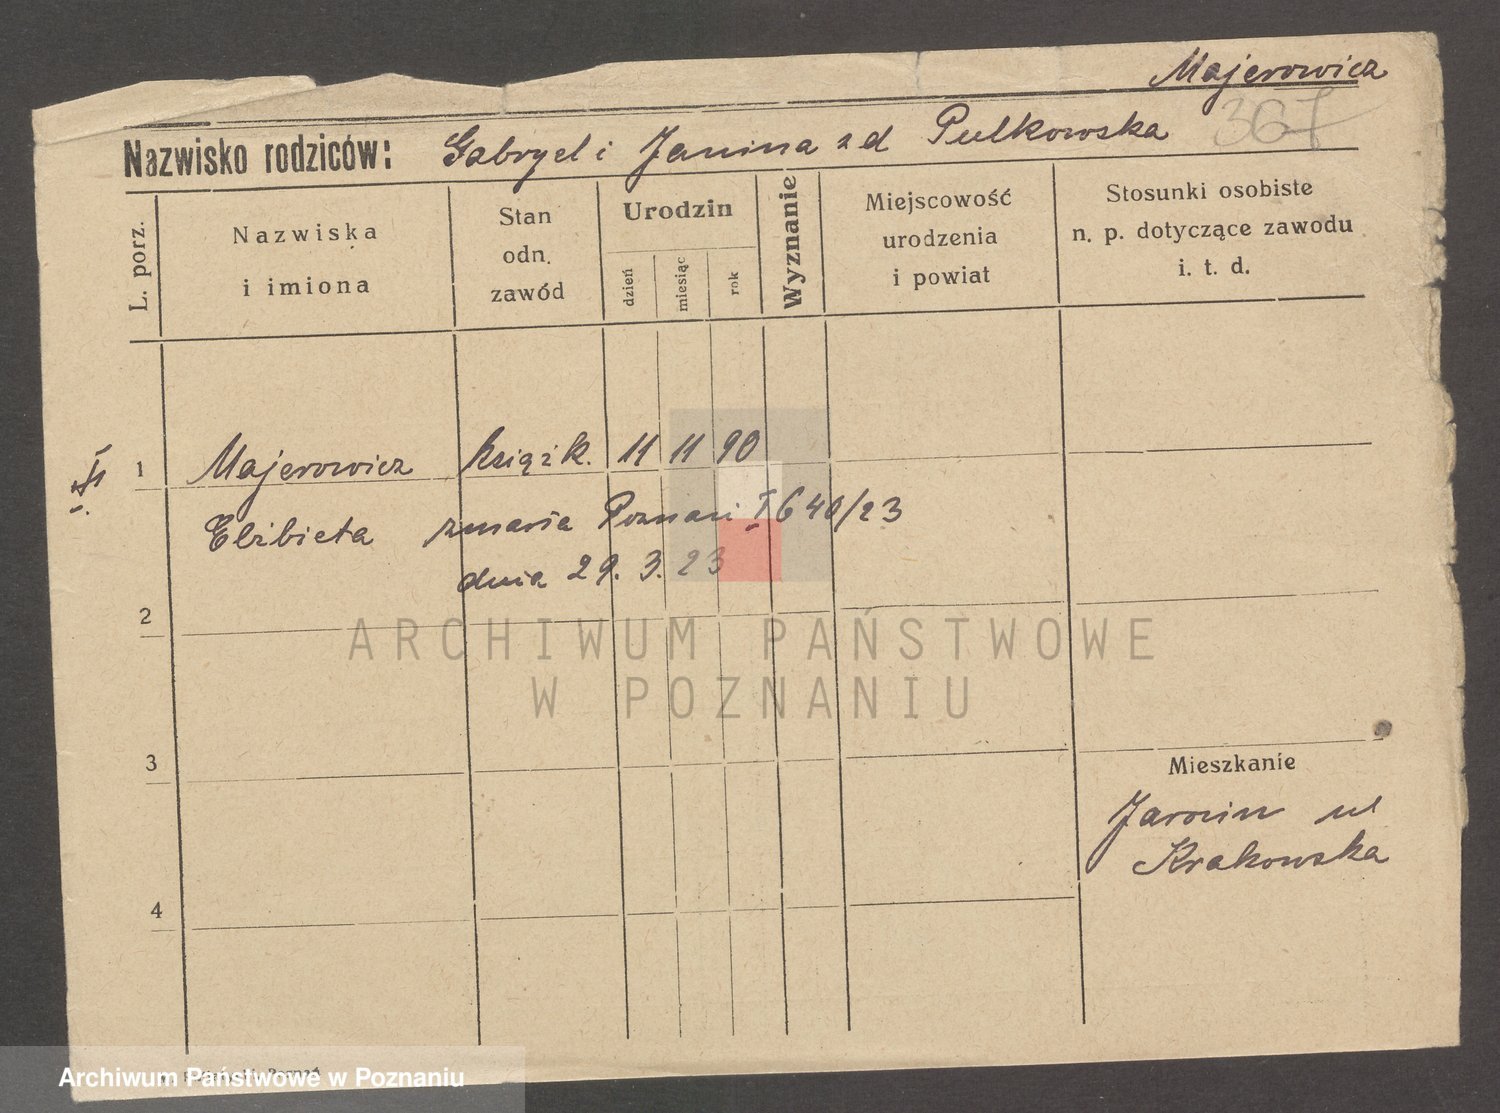 Majerowicz
367
Nazwisko rodziców: Gabryel i Janina z d Pulkowska
L. porz.
Nazwiska
i imiona
Stan
odn.
zawód
Urodzin
dzień
miesiąc
rok
Wyznanie
Miejscowość
urodzenia
i powiat
Stosunki osobiste
n. p. dotyczące zawodu
i. t. d.
1 Majerowicz książk. 11 11 90
Elżbieta zmarła Poznań I 640/23
dnia 29. 3. 23
2
ARCHIWUM PAŃSTWOWE
W POZNANIU
3
Mieszkanie
Jarocin ul
Krakowska
4
Archiwum Państwowe w Poznaniu